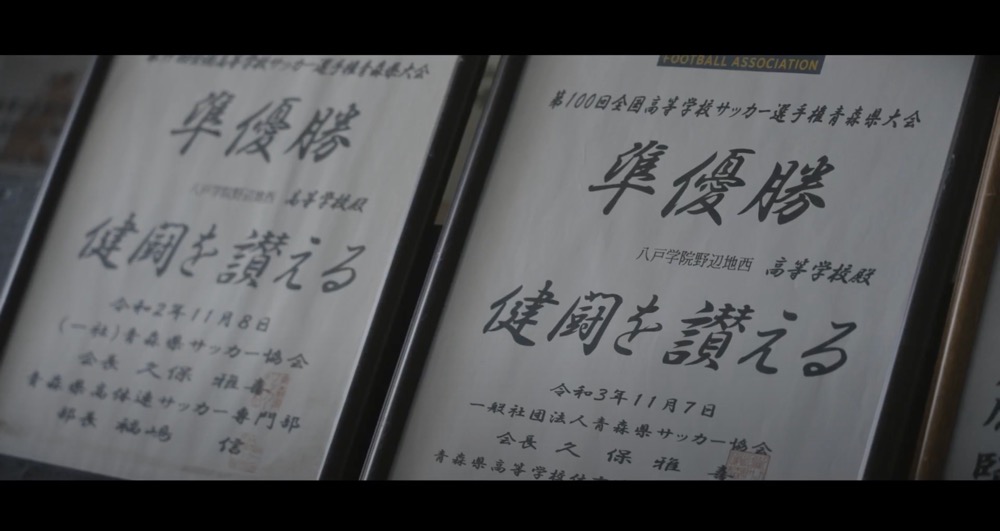 全国高等学校サッカー選手権青森県大会
準優勝
八戸学院野辺地西 高等学校殿
健闘を讃える
令和2年11月8日
(一社)青森県サッカー協会
会長 久保 雅喜
青森県高体連サッカー専門部
部長 福嶋 信
FOOTBALL ASSOCIATION
第100回全国高等学校サッカー選手権青森県大会
準優勝
八戸学院野辺地西 高等学校殿
健闘を讃える
令和3年11月7日
一般社団法人青森県サッカー協会
会長 久保 雅喜
青森県高等学校体育